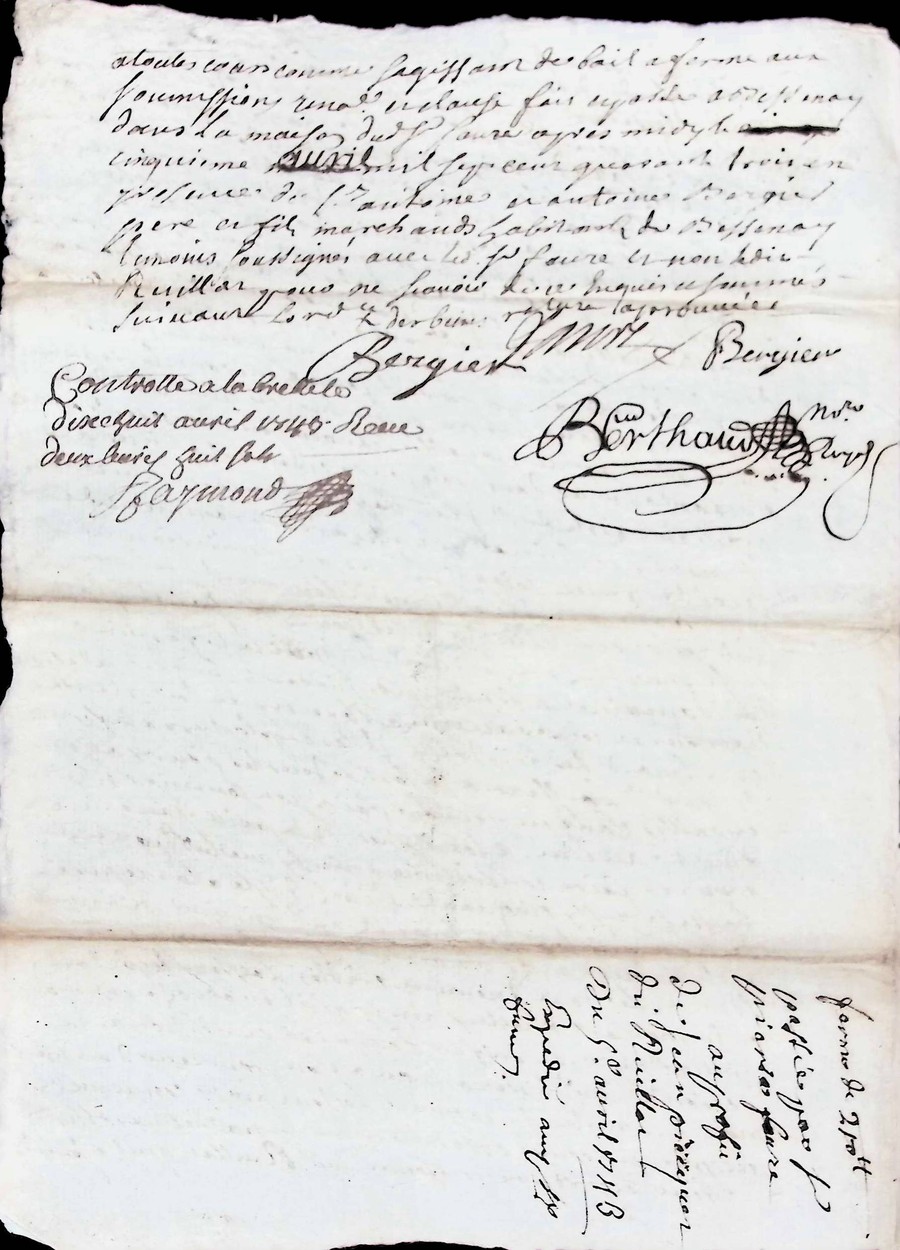 a toutes cours comme sagissant de bail a ferme aux
soumissions renon. et clause fait et passé a Bessenay
dans la maison dud. Sr. faure apres midy le
cinquieme avril mil sept cent quarante trois en
presence de Sr. antoine et antoine Bergier
pere et fils marchands habitants de Bessenay
temoins soussignés avec led. Sr. faure et non ledit
Ruillat pour ne scavoir de ce enquis et sommés
suivant lord. les deux rature approuvées
Bergier faure Bergier
Controllé a la brelele
dix huit avril 1743 Receu
deux livres huit sols
Raymond
Berthaud Nore
Royal
ferme de 210 tt
passée par Sr
pierre faure
au profit
de jean
du Ruillat
Du 5e. avril 1743
Expedié aux